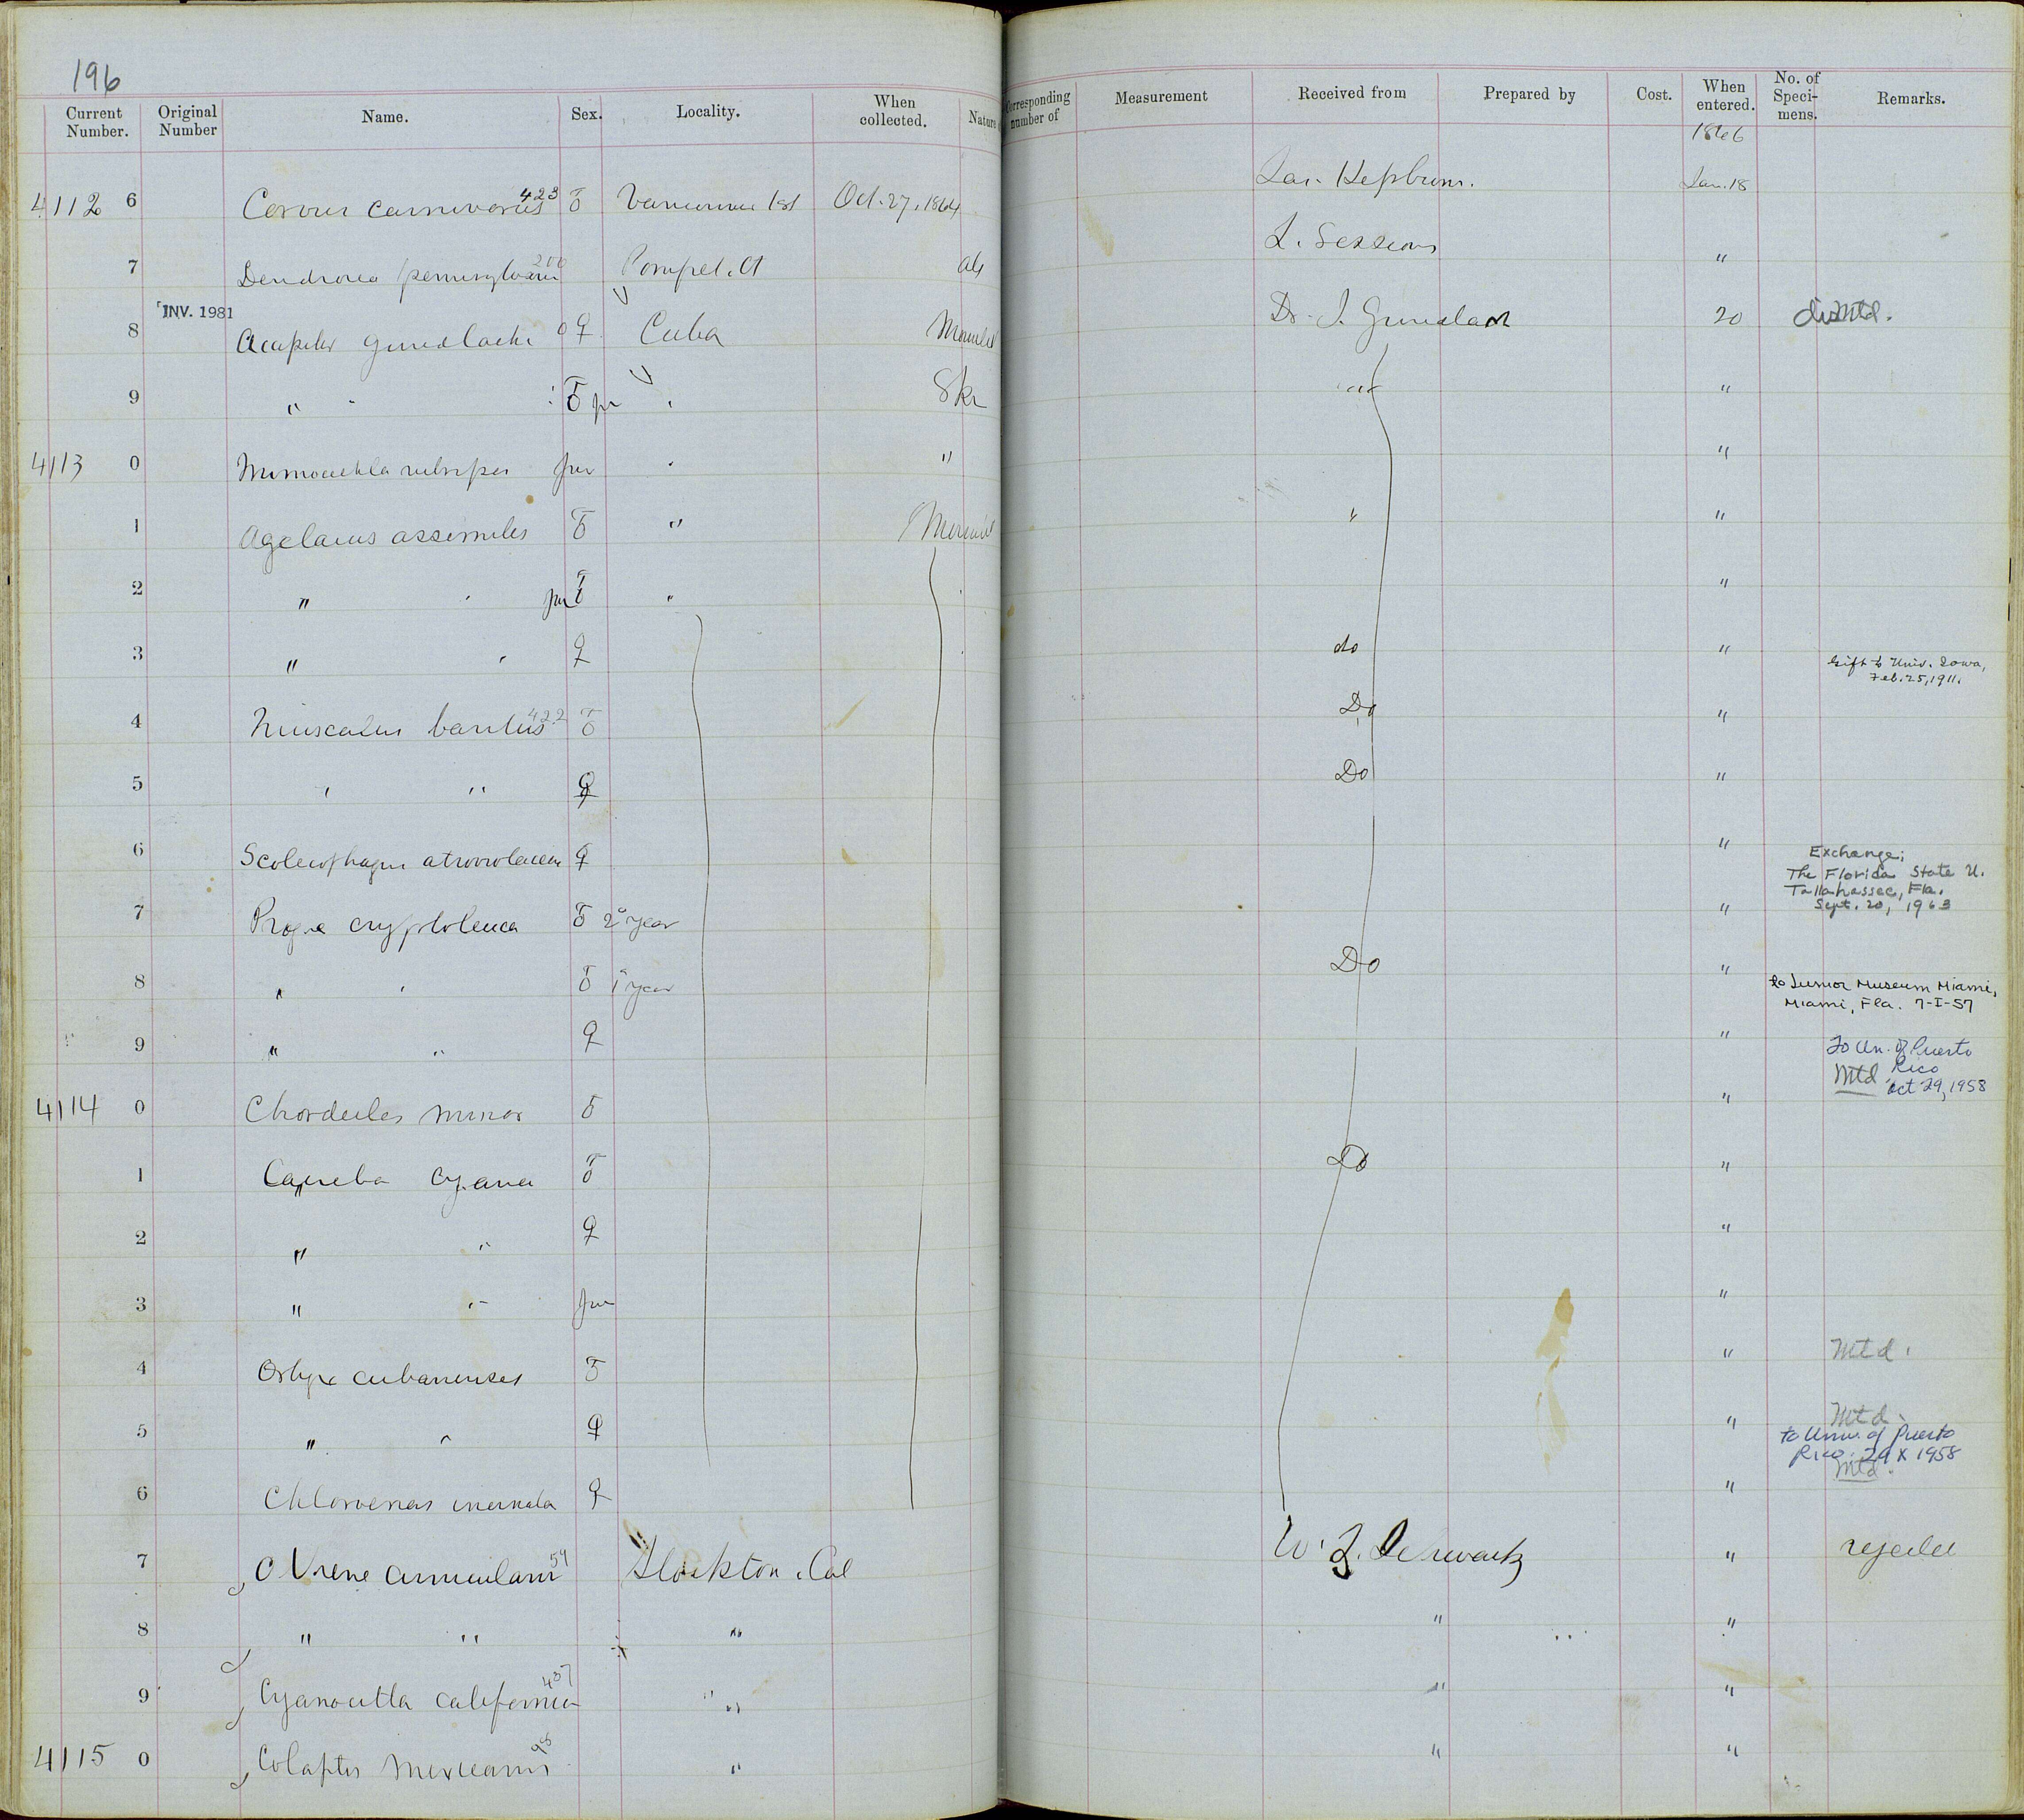 196
Current Number. Original Number Name. Sex. Locality. When collected. Nature
Corresponding number of Measurement Received from Prepared by Cost. When entered. No. of Speci-mens. Remarks.
1866
4112 6 Corvus carnivorus 423 ♂ Vancouver Isl Oct. 27, 1864 Jas. Hepburn. Jan. 18
7 Dendroica pennsylvan 200 Pomfret. Ct L. Sessions "
INV. 1981
8 Accipiter gundlachi ♀ Cuba Mounted Dr. J. Gundlach 20 disMtd.
9 " " ♂ jr " Sk "
4113 0 Mimocichla rubripes juv " " "
1 Agelaius assimilis ♂ " Mounted " "
2 " " juv ♂ " "
3 " " ♀ do " Gift to Univ. Iowa,
Feb. 25, 1911.
4 Quiscalus baritus 422 ♂ Do "
5 " " ♀ Do "
6 Scolecophagus atroviolaceus ♀ "
Exchange;
The Florida State U.
Tallahassee, Fla.
Sept. 20, 1963
7 Progne cryptoleuca ♂ 2° year "
8 " " ♂ 1° year Do "
to Junior Museum Miami,
Miami, Fla. 7-I-57
9 " " ♀ "
To Un. of Puerto
Rico
Mtd Oct 29, 1958
4114 0 Chordeiles minor ♂ "
1 Caereba cyanea ♂ Do "
2 " " ♀ "
3 " " juv "
4 Ortyx cubanensis ♂ " Mtd.
5 " " ♀ " Mtd.
to Univ. of Puerto
Rico. 29 X 1958
Mtd.
6 Chloroenas inornata ♀ "
7 Athene cunicularia 59 Stockton, Cal W. F. Schwartz " rejected
8 " " " " "
9 Cyanocitta californica 437 " " "
4115 0 Colaptes mexicanus 98 " " "